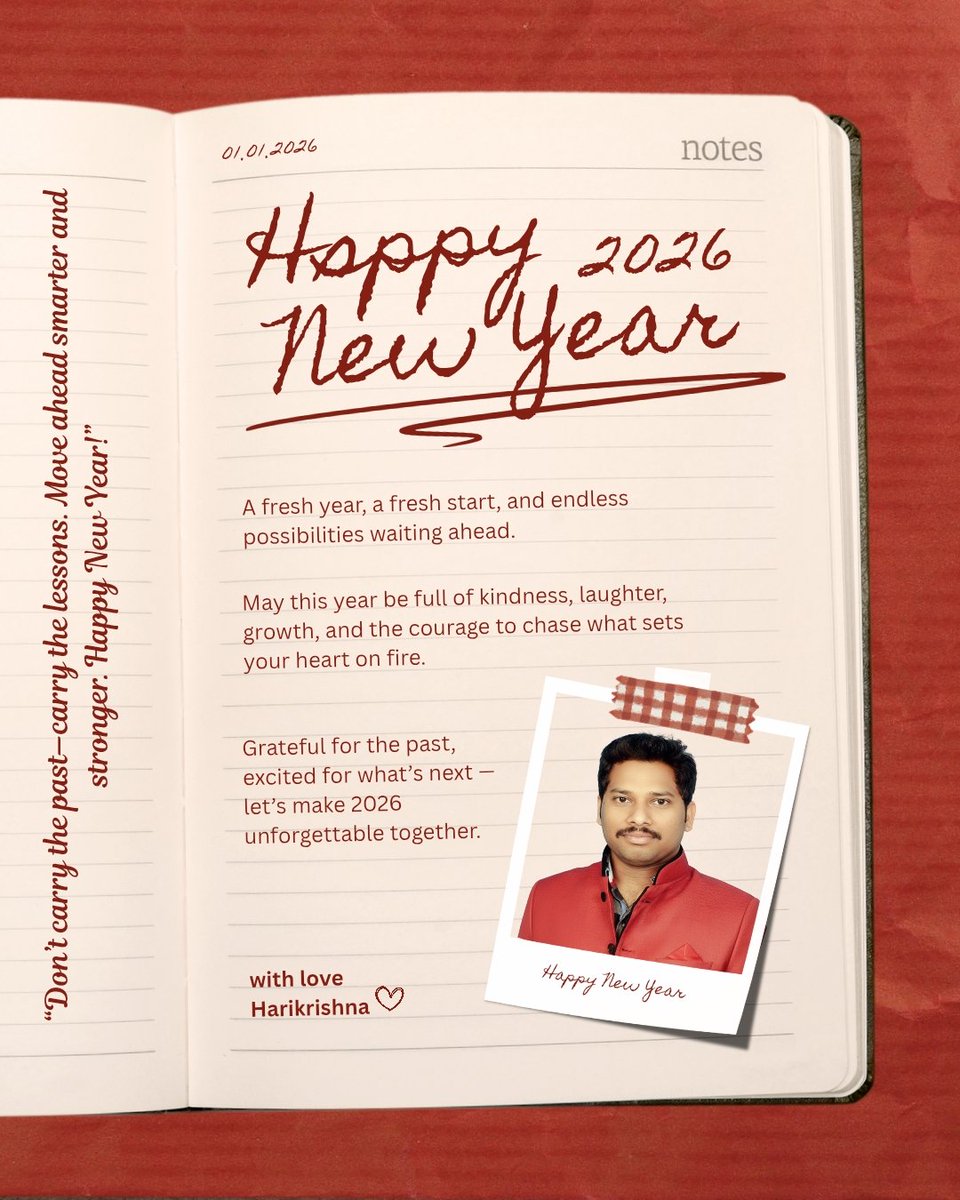 “Don’t carry the past—carry the lessons. Move ahead smarter and
stronger. Happy New Year!”
01.01.2026
notes
Happy 2026
New Year
A fresh year, a fresh start, and endless
possibilities waiting ahead.
May this year be full of kindness, laughter,
growth, and the courage to chase what sets
your heart on fire.
Grateful for the past,
excited for what’s next —
let’s make 2026
unforgettable together.
with love
Harikrishna
Happy New Year